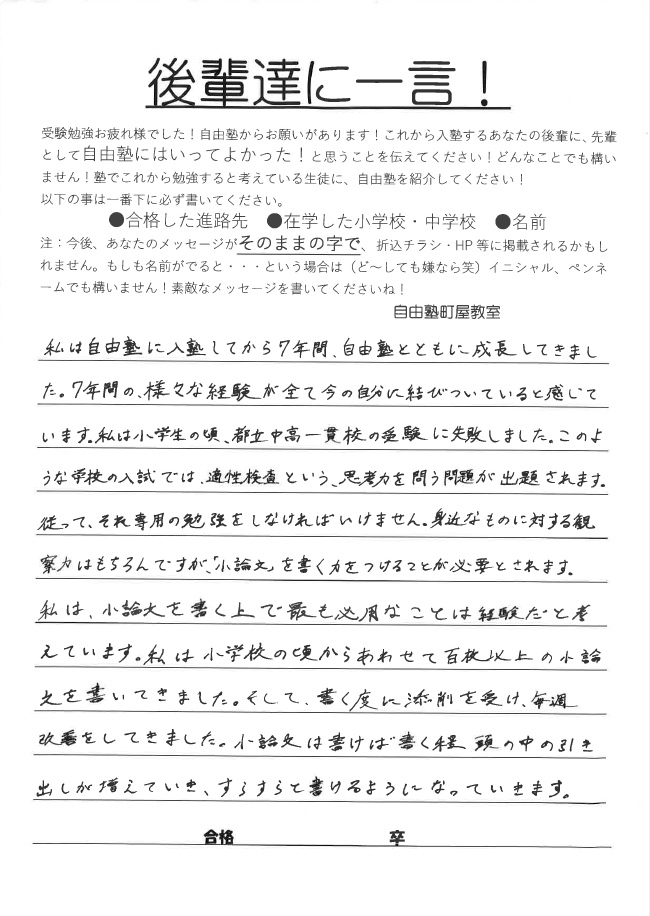 後輩達に一言！
受験勉強お疲れ様でした！自由塾からお願いがあります！これから入塾するあなたの後輩に、先輩
として自由塾にはいってよかった！と思うことを伝えてください！どんなことでも構い
ません！塾でこれから勉強すると考えている生徒に、自由塾を紹介してください！
以下の事は一番下に必ず書いてください。
●合格した進路先　●在学した小学校・中学校　●名前
注：今後、あなたのメッセージがそのままの字で、折込チラシ・HP 等に掲載されるかもし
れません。もしも名前がでると・・・という場合は（ど～しても嫌なら笑）イニシャル、ペンネ
ームでも構いません！素敵なメッセージを書いてくださいね！
自由塾町屋教室
私は自由塾に入塾してから7年間、自由塾とともに成長してきまし
た。7年間の、様々な経験が全て今の自分に結びついていると感じて
います。私は小学生の頃、都立中高一貫校の受験に失敗しました。このよ
うな学校の入試では、適性検査という、思考力を問う問題が出題されます。
従って、それ専用の勉強をしなければいけません。身近なものに対する観
察力はもちろんですが、「小論文」を書く力をつけることが必要とされます。
私は、小論文を書く上で最も必用なことは経験だと考
えています。私は小学校の頃からあわせて百枚以上の小論
文を書いてきました。そして、書く度に添削を受け、毎週
改善をしてきました。小論文は書けば書く程 頭の中の引き
出しが増えていき、すらすらと書けるようになっていきます。
合格　卒